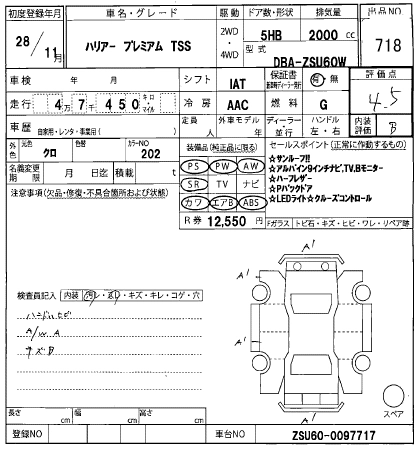 初度登録年月 車名・グレード 駆動 ドア数・形状 排気量 出品NO
28/11月 ハリアー プレミアム TSS 2WD・4WD 5HB 2000 cc 718
型式 DBA-ZSU60W
車検 年 月 シフト IAT 保証書 有・無 評価点
4.5
走行 4万7千450 キロ・マイル 冷房 AAC 燃料 G
車歴 自家用・レンタ・事業用( ) 定員 人 外車モデル 年 ディーラー・並行 ハンドル 左・右 内装評価 B
外色 元色 クロ 色替 カラーNO 202 装備品(純正品に限る) セールスポイント(正常に作動するもの)
PS PW AW
SR TV ナビ
カワ エアB ABS
☆サンルーフ!!
☆アルパイン9インチナビ,TV,Bモニター
☆ハーフレザー
☆Pバックドア
☆LEDライト☆クルーズコントロール
名義変更期限 月 日迄 積載 t
注意事項(欠品・修復・不具合箇所および状態) R券 12,550 円 Fガラス トビ石・キズ・ヒビ・ワレ・リペア跡
A'
A'
A'
A'
検査員記入 内装 汚レ・スレ・キズ・キレ・コゲ・穴
A/W A
キズB
スペア
長さ cm 幅 cm 高さ cm
登録NO 車台NO ZSU60-0097717